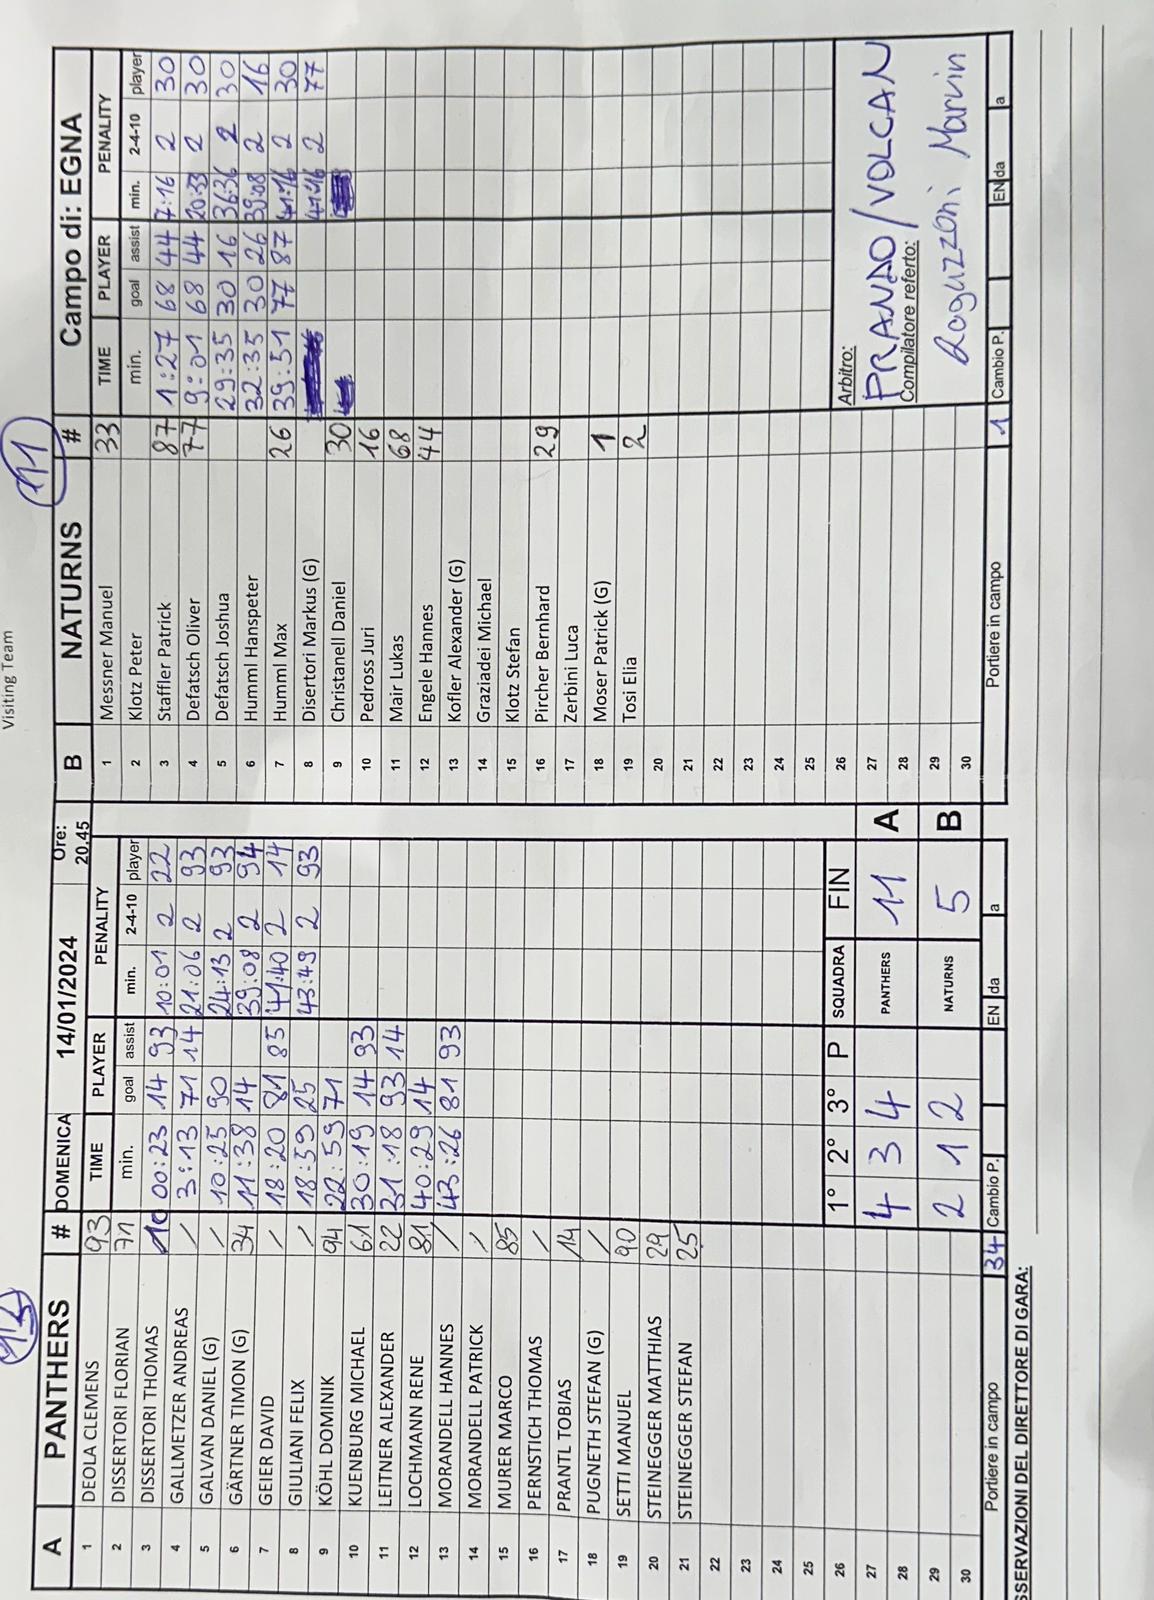 Visiting Team
15
11
A PANTHERS # DOMENICA 14/01/2024 Ore: 20.45
B NATURNS # Campo di: EGNA
TIME PLAYER PENALITY
min. goal assist min. 2-4-10 player
1 DEOLA CLEMENS 93
2 DISSERTORI FLORIAN 71
3 DISSERTORI THOMAS 10 00:23 14 93 10:01 2 22
4 GALLMETZER ANDREAS / 3:13 71 14 21:06 2 93
5 GALVAN DANIEL (G) / 10:25 90 24:13 2 93
6 GÄRTNER TIMON (G) 34 11:38 14 39:08 2 94
7 GEIER DAVID / 18:20 81 85 41:40 2 14
8 GIULIANI FELIX / 18:59 25 43:49 2 93
9 KÖHL DOMINIK 94 22:59 71
10 KUENBURG MICHAEL 61 30:19 14 93
11 LEITNER ALEXANDER 22 31:18 93 14
12 LOCHMANN RENE 81 40:29 14
13 MORANDELL HANNES / 43:26 81 93
14 MORANDELL PATRICK /
15 MURER MARCO 85
16 PERNSTICH THOMAS /
17 PRANTL TOBIAS 14
18 PUGNETH STEFAN (G) /
19 SETTI MANUEL 90
20 STEINEGGER MATTHIAS 29
21 STEINEGGER STEFAN 25
22
23
24
25
26 1° 2° 3° P SQUADRA FIN
27
28 4 3 4 PANTHERS 11 A
29
30 2 1 2 NATURNS 5 B
Portiere in campo 34 Cambio P. EN da a
SSERVAZIONI DEL DIRETTORE DI GARA:
TIME PLAYER PENALITY
min. goal assist min. 2-4-10 player
1 Messner Manuel 33
2 Klotz Peter
3 Staffler Patrick 87 1:27 68 44 7:16 2 30
4 Defatsch Oliver 77 9:01 68 44 20:33 2 30
5 Defatsch Joshua 29:35 30 16 36:36 2 30
6 Humml Hanspeter 32:35 30 26 39:08 2 16
7 Humml Max 26 39:51 77 87 41:16 2 30
8 Disertori Markus (G) 41:16 2 77
9 Christanell Daniel 30
10 Pedross Juri 16
11 Mair Lukas 68
12 Engele Hannes 44
13 Kofler Alexander (G)
14 Graziadei Michael
15 Klotz Stefan
16 Pircher Bernhard 29
17 Zerbini Luca
18 Moser Patrick (G) 1
19 Tosi Elia 2
20
21
22
23
24
25
26 Arbitro:
27 PRANDO/VOLCAN
28 Compilatore referto:
29 Raguzzoni Marvin
30
Portiere in campo 1 Cambio P. EN da a